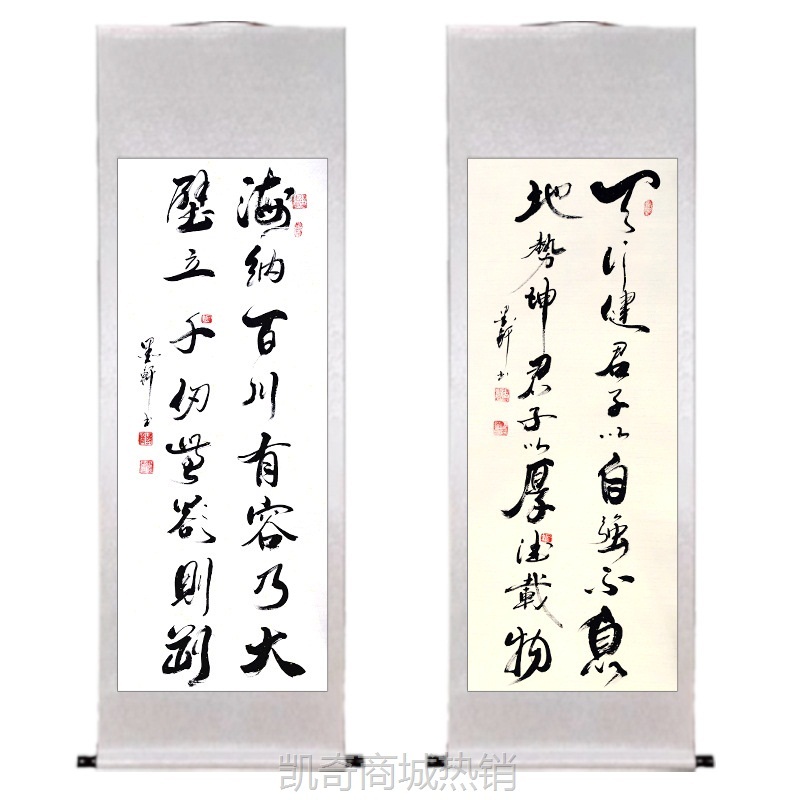 海納百川有容乃大
壁立千仞無欲則剛
墨軒书
天行健君子以自强不息
地勢坤君子以厚德載物
墨軒书
凯奇商城热销